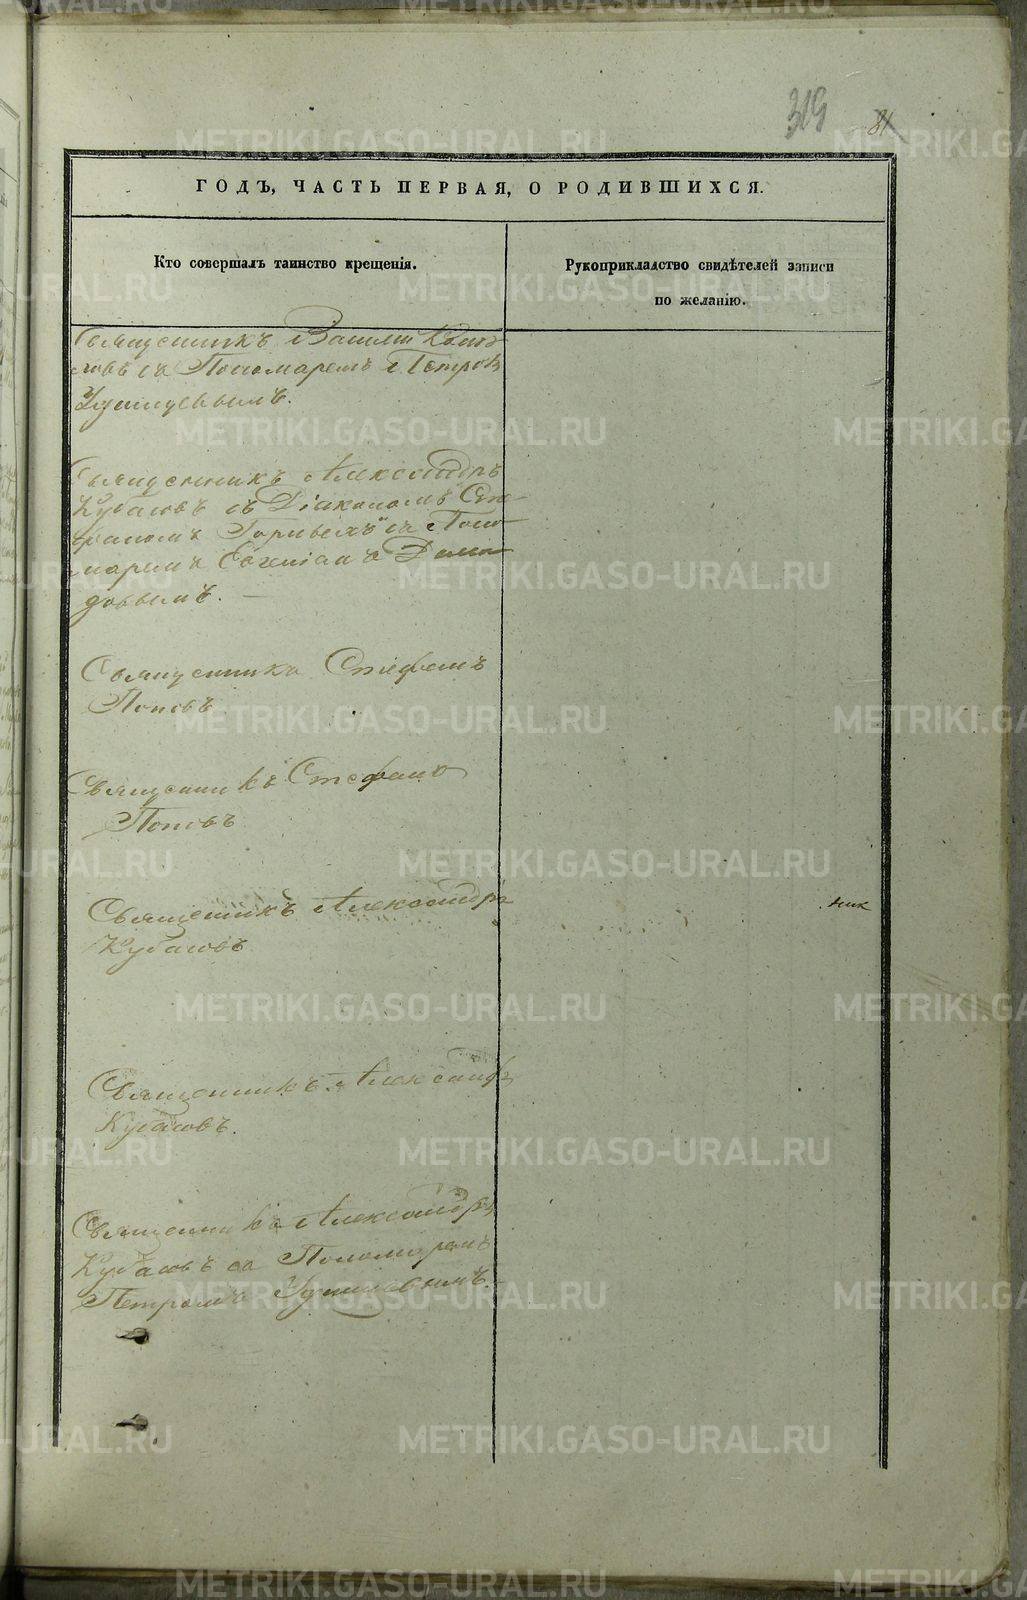 319
81
ГОДЪ, ЧАСТЬ ПЕРВАЯ, О РОДИВШИХСЯ.
Кто совершалъ таинство крещенія.
Рукоприкладство свидѣтелей записи
по желанію.
Священникъ Василій
съ Пономаремъ Петром
Священникъ Александръ
Кубасовъ съ Діакономъ Сте-
фаномъ съ Поно-
маремъ Евгеніемъ Деми-
довымъ.
Священникъ Стефанъ
Поповъ
Священникъ Стефанъ
Поповъ
Священникъ Александръ
Кубасовъ
ник
Священникъ Александръ
Кубасовъ.
Священникъ Александръ
Кубасовъ съ Пономаремъ
Петромъ
METRIKI.GASO-URAL.RU